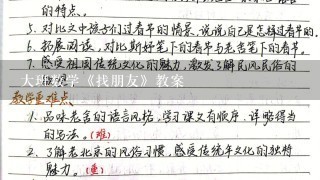 的特点。
5. 对比文中孩子们过春节的情景,说说自己是怎样过春节的。
6. 拓展阅读,对比斯妤笔下的春节与老舍笔下的春节。
7. 感受祖国传统文化的魅力,激发了解民风民俗的
大班数学《找朋友》教案
教学重难点
1. 品味老舍的语言风格,学习课文有顺序、详略得当
的写法。(难)
2. 了解老北京的风俗习惯,感受传统年文化的独特
魅力。(重)